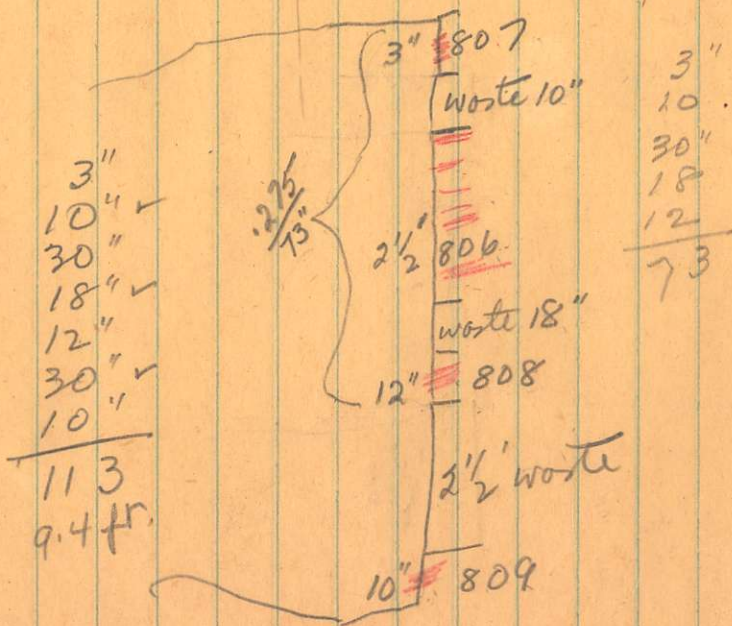 3"
10" ✓
30"
18" ✓
12"
30" ✓
10"
113
9.4 ft.
.275
73"
3" 807
waste 10"
2 1/2' 806
waste 18"
12" 808
2 1/2' waste
10" 809
3"
10
30"
18
12
73